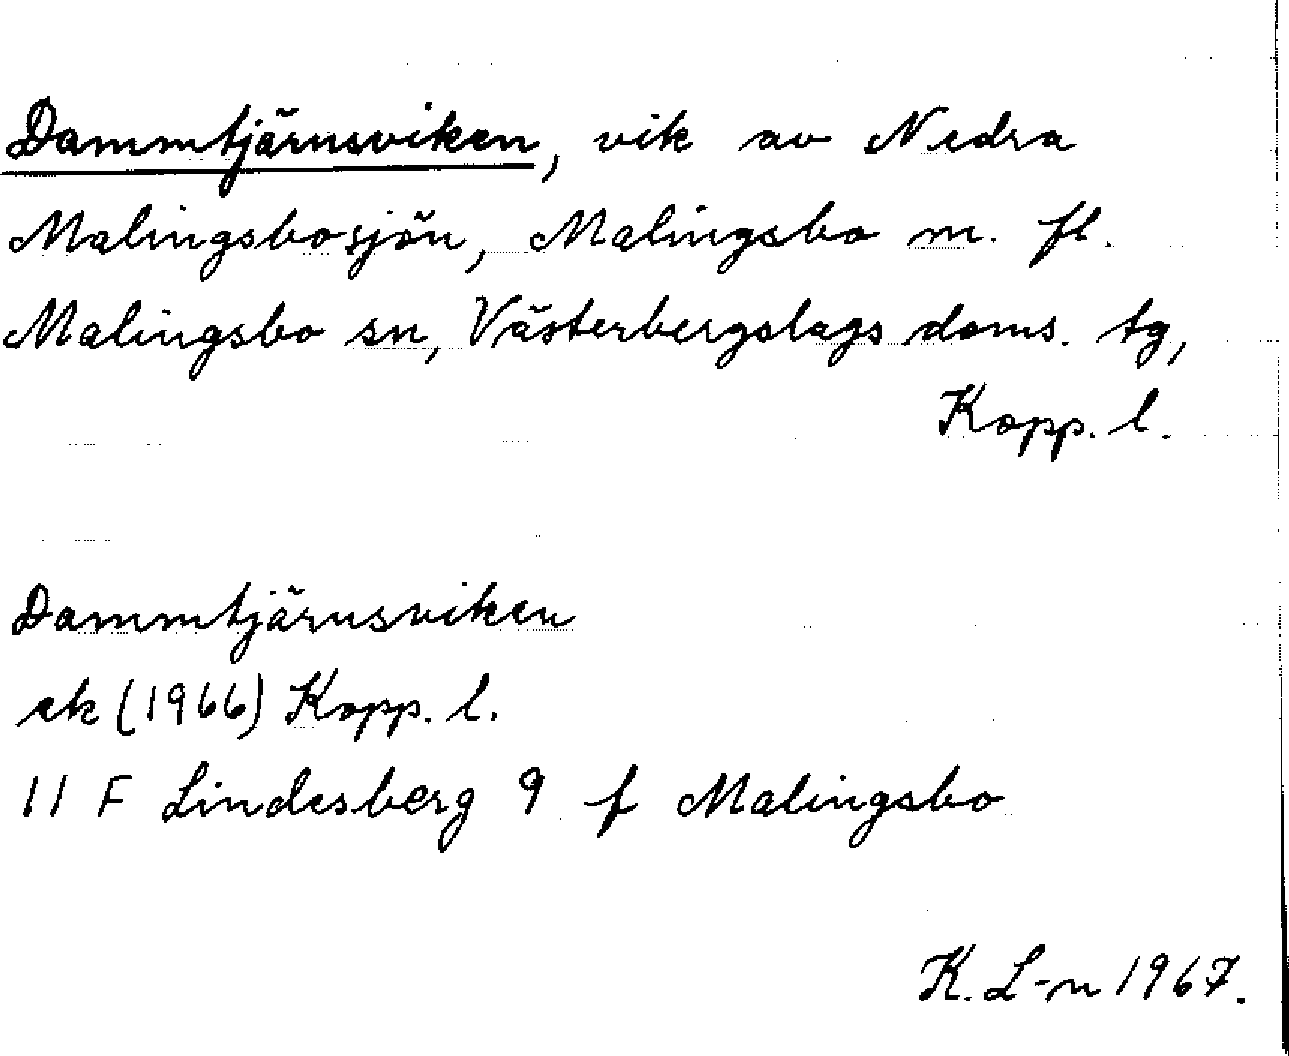 Dammtjärnsviken, vik av Nedra
Malingsbosjön, Malingsbo m. fl.
Malingsbo sn, Västerbergslags doms. tg,
Kopp. l.
Dammtjärnsviken
ek (1966) Kopp. l.
11 F Lindesberg 9 f Malingsbo
K. L-n 1967.